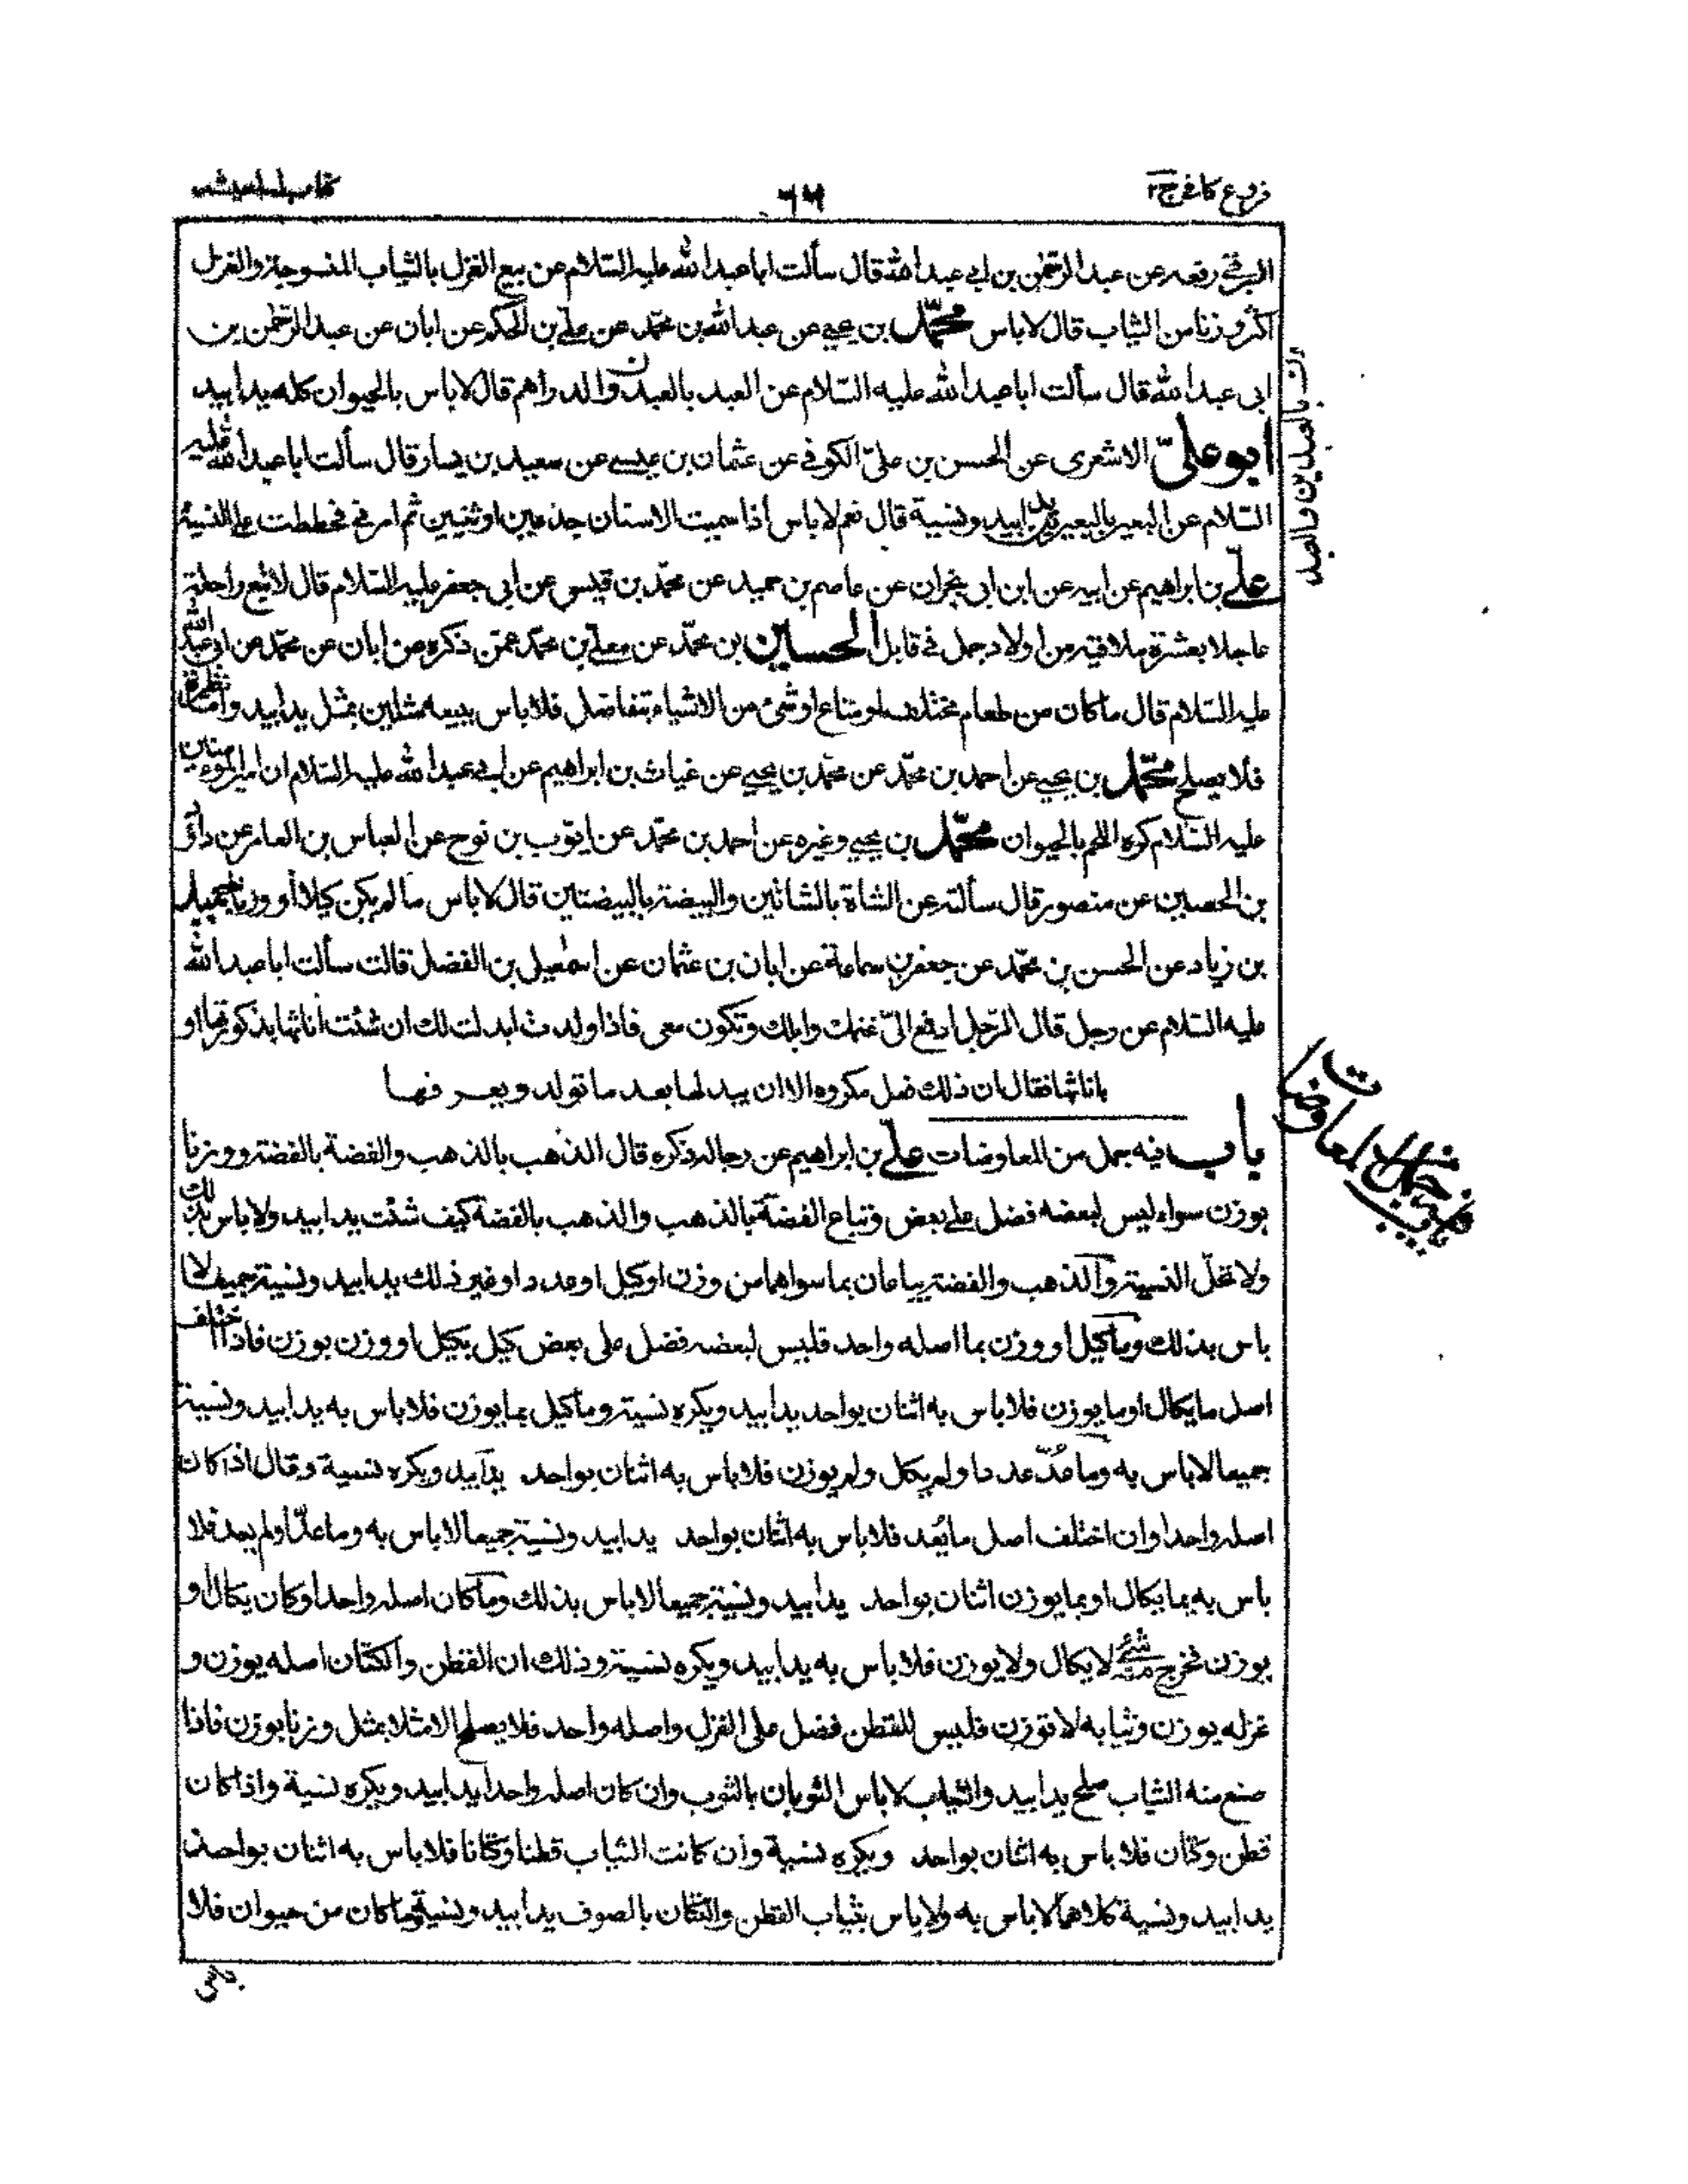 فروع كافي ج٢
٦٦
كتاب المعيشة
البرقي رفعه عن عبد الرحمٰن بن ابي عبد الله قال سألت ابا عبد الله عليه السلام عن بيع الغزل بالثياب المنسوجة والغزل
اكثر وزنا من الثياب قال لا باس محمّد بن يحيى عن عبد الله بن محمّد عن علي بن الحكم عن ابان عن عبد الرحمٰن بن
ابى عبد الله قال سألت ابا عبد الله عليه السلام عن العبد بالعبدين والدراهم قال لا باس بالحيوان كله يدا بيد
ابو عليّ الاشعرى عن الحسن بن عليّ الكوفي عن عثمان بن عيسى عن سعيد بن يسار قال سألت ابا عبد الله عليه
السلام عن البعير بالبعيرين يدا بيد ونسية قال نعم لا باس اذا سميت الاسنان جذعين او ثنيين ثم امرني فخططت على النسية
علي بن ابراهيم عن ابيه عن ابن ابى نجران عن عاصم بن حميد عن محمّد بن قيس عن ابي جعفر عليه السلام قال لا تبع راحلة
عاجلا بعشرة ملاقيح من اولاد جمل في قابل الحسين بن محمّد عن معلى بن محمّد عمّن ذكره عن ابان عن محمّد عن ابي عبد الله
عليه السلام قال ما كان من طعام مختلف او متاع او شئ من الاشياء يتفاضل فلا باس ببيعه مثلين بمثل يدا بيد واما نظرة
فلا يصلح محمّد بن يحيى عن احمد بن محمّد عن محمّد بن يحيى عن غياث بن ابراهيم عن ابي عبد الله عليه السلام ان امير المؤمنين
عليه السلام كره اللحم بالحيوان محمّد بن يحيى وغيره عن احمد بن محمّد عن ايّوب بن نوح عن العباس بن العامر عن داؤد
بن الحصين عن منصور قال سألته عن الشاة بالشاتين والبيضة بالبيضتين قال لا باس ما لم يكن كيلا أو وزنا حميد
بن زياد عن الحسن بن محمّد عن جعفر بن سماعة عن ابان بن عثمان عن اسمٰعيل بن الفضل قالت سألت ابا عبد الله
عليه السلام عن رجل قال الرّجل ادفع اليّ غنمك وابلك وتكون معى فاذا ولدت ابدلت لك ان شئت اناثها بذكورتها او
باناثها فقال ان ذلك فعل مكروه الا ان يبدلها بعد ما تولد ويعرفها
باب فيه جمل من المعاوضات علي بن ابراهيم عن رجاله ذكره قال الذهب بالذهب والفضة بالفضة ووزنا
بوزن سواء ليس لبعضه فضل على بعض وتباع الفضة بالذهب والذهب بالفضة كيف شئت يدا بيد ولا باس بذلك
ولا تحلّ النسية والذهب والفضة يباعان بما سواهما من وزن او كيل او عدد او غير ذلك يدا بيد ونسية جميعا لا
باس بذلك وما كيل او وزن بما اصله واحد فليس لبعضه فضل على بعض كيل بكيل او وزن بوزن فاذا اختلف
اصل ما يكال او ما يوزن فلا باس به اثنان بواحد يدا بيد ويكره نسية وما كيل بما يوزن فلا باس به يدا بيد ونسية
جميعا لا باس به وما عُدّ عددا ولم يكال ولم يوزن فلا باس به اثنان بواحد يدا بيد ويكره نسية وقال اذا كان
اصله واحدا وان اختلف اصل ما يُعد فلا باس به اثنان بواحد يدا بيد ونسية جميعا لا باس به وما عدّ او لم يعد فلا
باس به بما يكال او بما يوزن اثنان بواحد يدا بيد ونسية جميعا لا باس بذلك وما كان اصله واحدا وكان يكال او
يوزن فخرج منه شئ لا يكال ولا يوزن فلا باس به يدا بيد ويكره نسية وذلك ان القطن والكتان اصله يوزن و
غزله يوزن وثيابه لا توزن فليس للقطن فضل على الغزل واصله واحد فلا يصلح الا مثلا بمثل وزنا بوزن فاذا
صنع منه الثياب صلح يدا بيد والثياب لا باس الثوبان بالثوب وان كان اصله واحدا يدا بيد ويكره نسية واذا كان
قطن وكتان فلا باس به اثنان بواحد ويكره نسية وان كانت الثياب قطنا وكتانا فلا باس به اثنان بواحد
يدا بيد ونسية كلاهما لا باس به ولا باس بثياب القطن والكتان بالصوف يدا بيد ونسية وما كان من حيوان فلا
باب فيه جمل المعاوضات